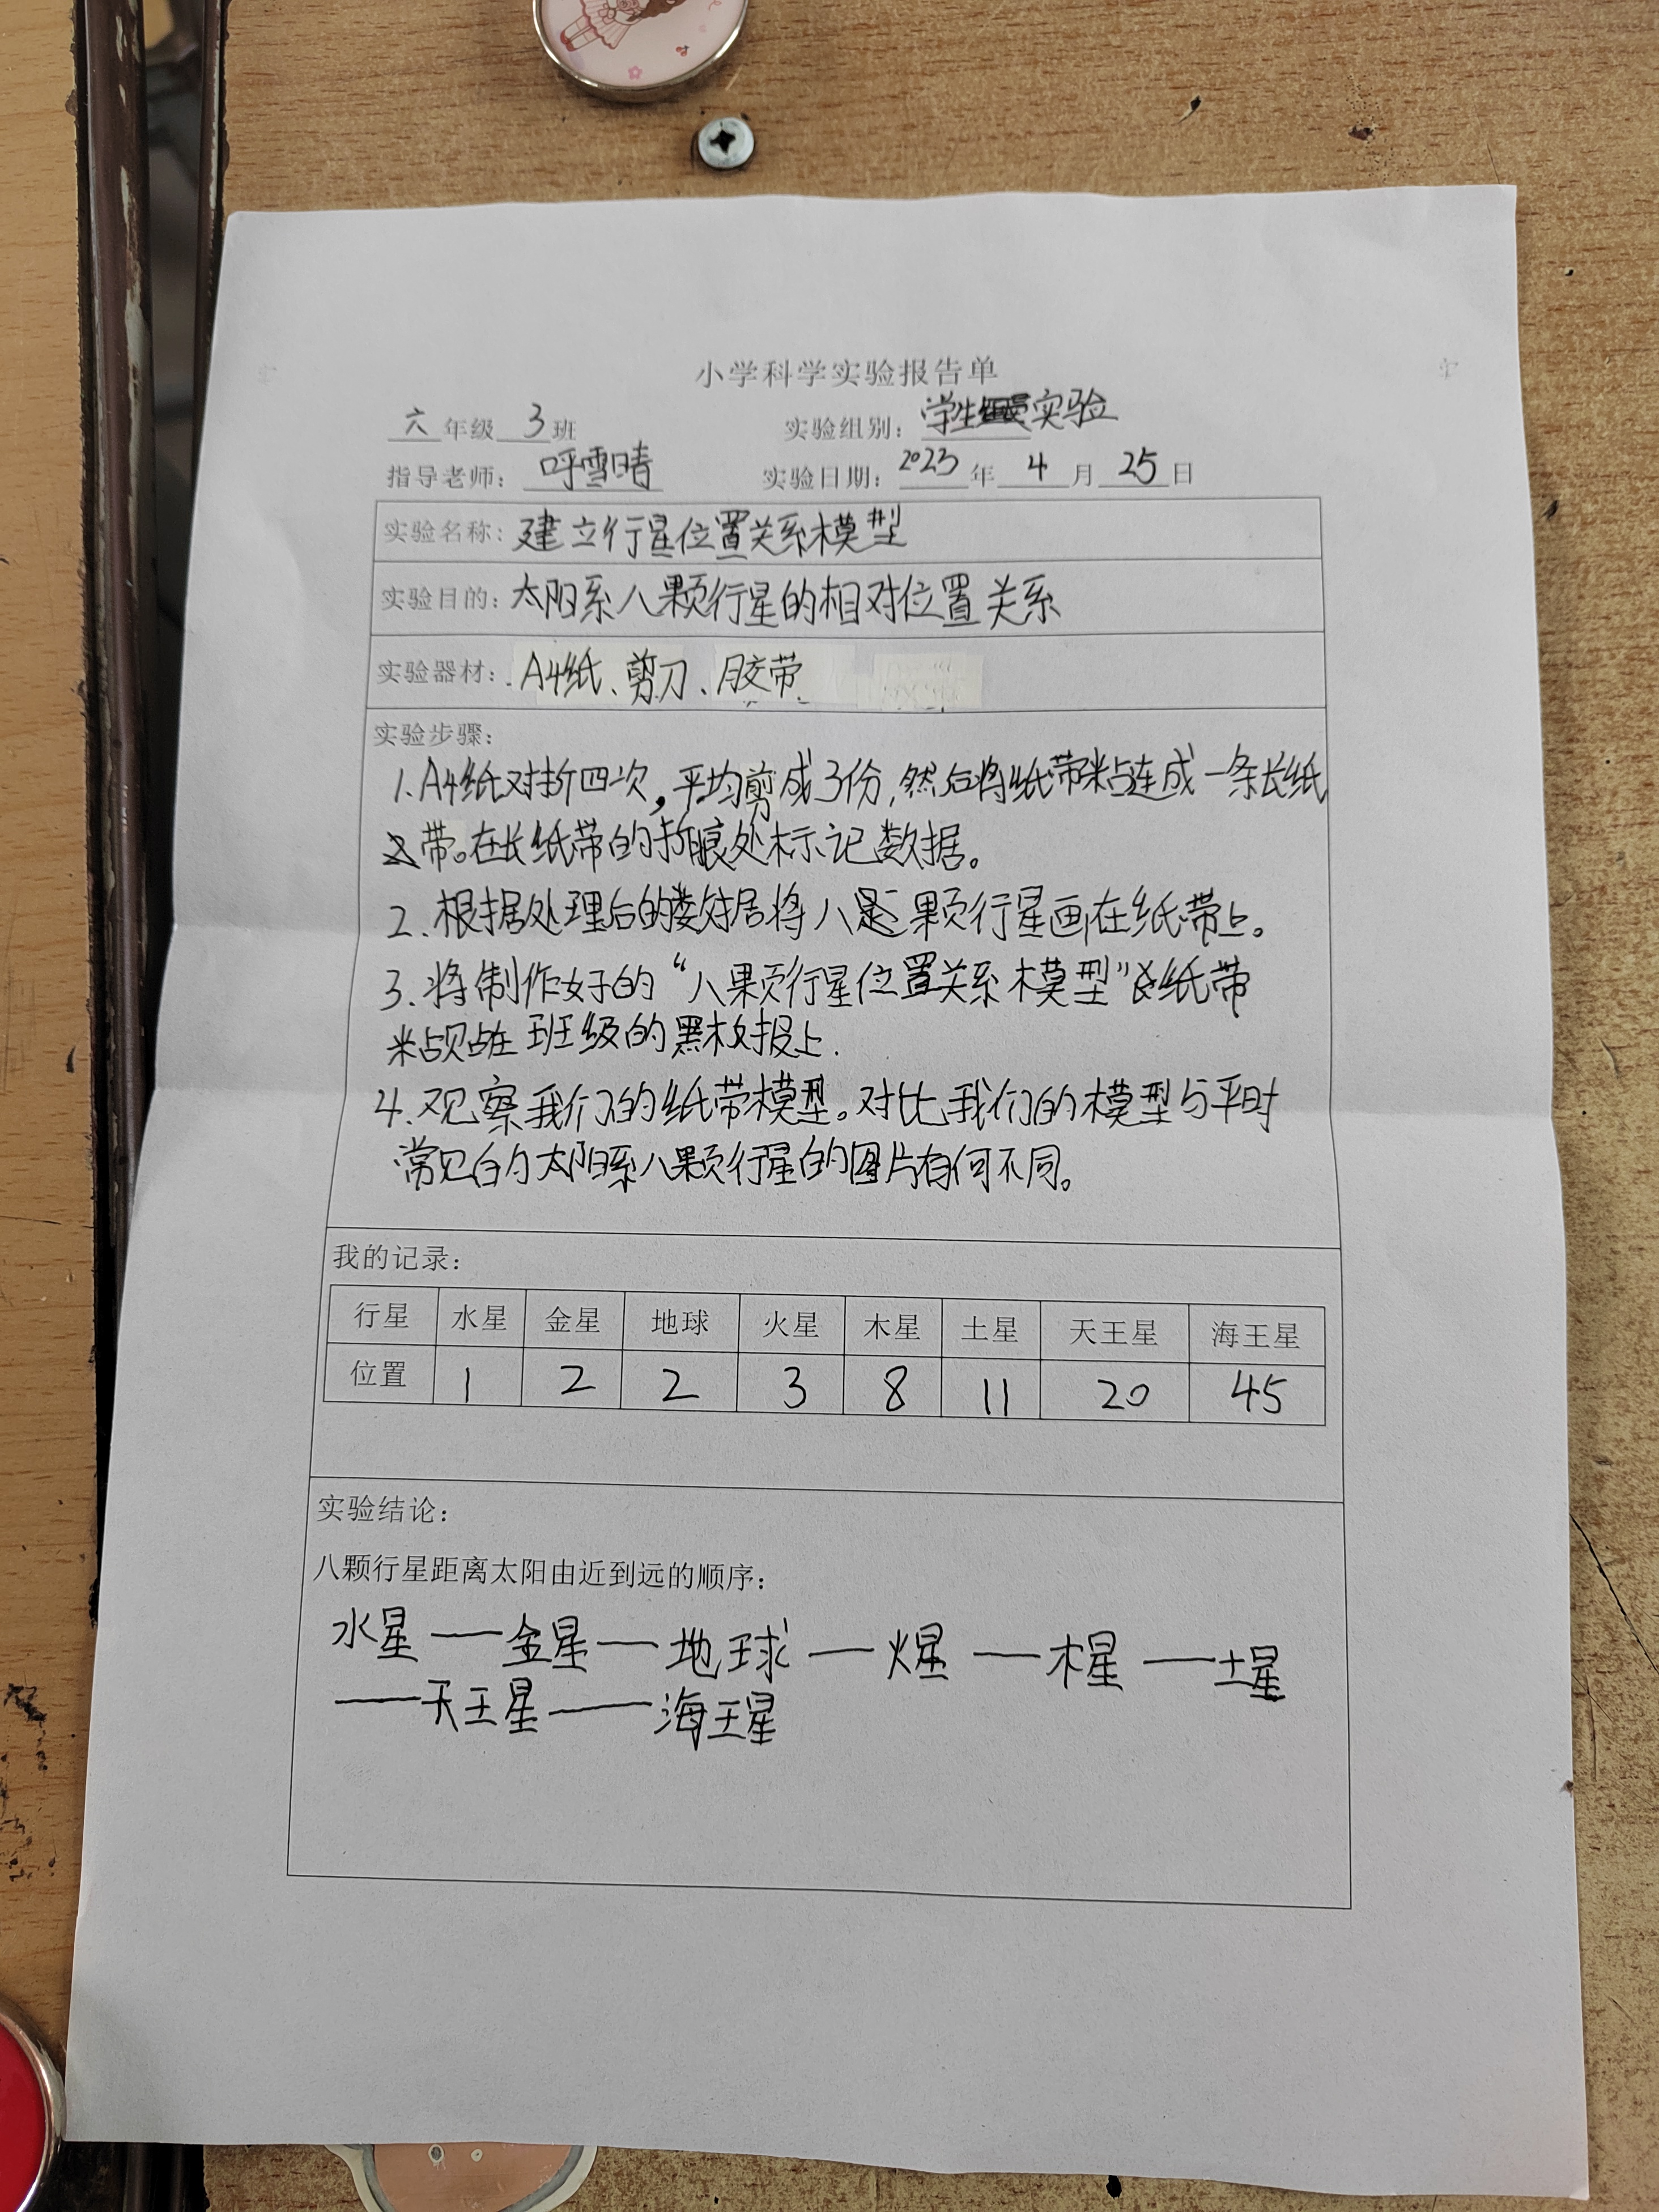 小学科学实验报告单
六年级 3 班 实验组别：学生实验
指导老师：呼雪晴 实验日期：2023 年 4 月 25 日
实验名称：建立行星位置关系模型
实验目的：太阳系八颗行星的相对位置关系
实验器材：A4纸、剪刀、胶带
实验步骤：
1.A4纸对折四次，平均剪成3份，然后将纸带粘连成一条长纸
带。在长纸带的折痕处标记数据。
2.根据处理后的数据将八颗行星画在纸带上。
3.将制作好的“八颗行星位置关系模型”纸带
粘贴在班级的黑板报上.
4.观察我们的纸带模型。对比我们的模型与平时
常见的太阳系八颗行星的图片有何不同。
我的记录：
行星 水星 金星 地球 火星 木星 土星 天王星 海王星
位置 1 2 2 3 8 11 20 45
实验结论：
八颗行星距离太阳由近到远的顺序：
水星——金星——地球——火星——木星——土星
——天王星——海王星